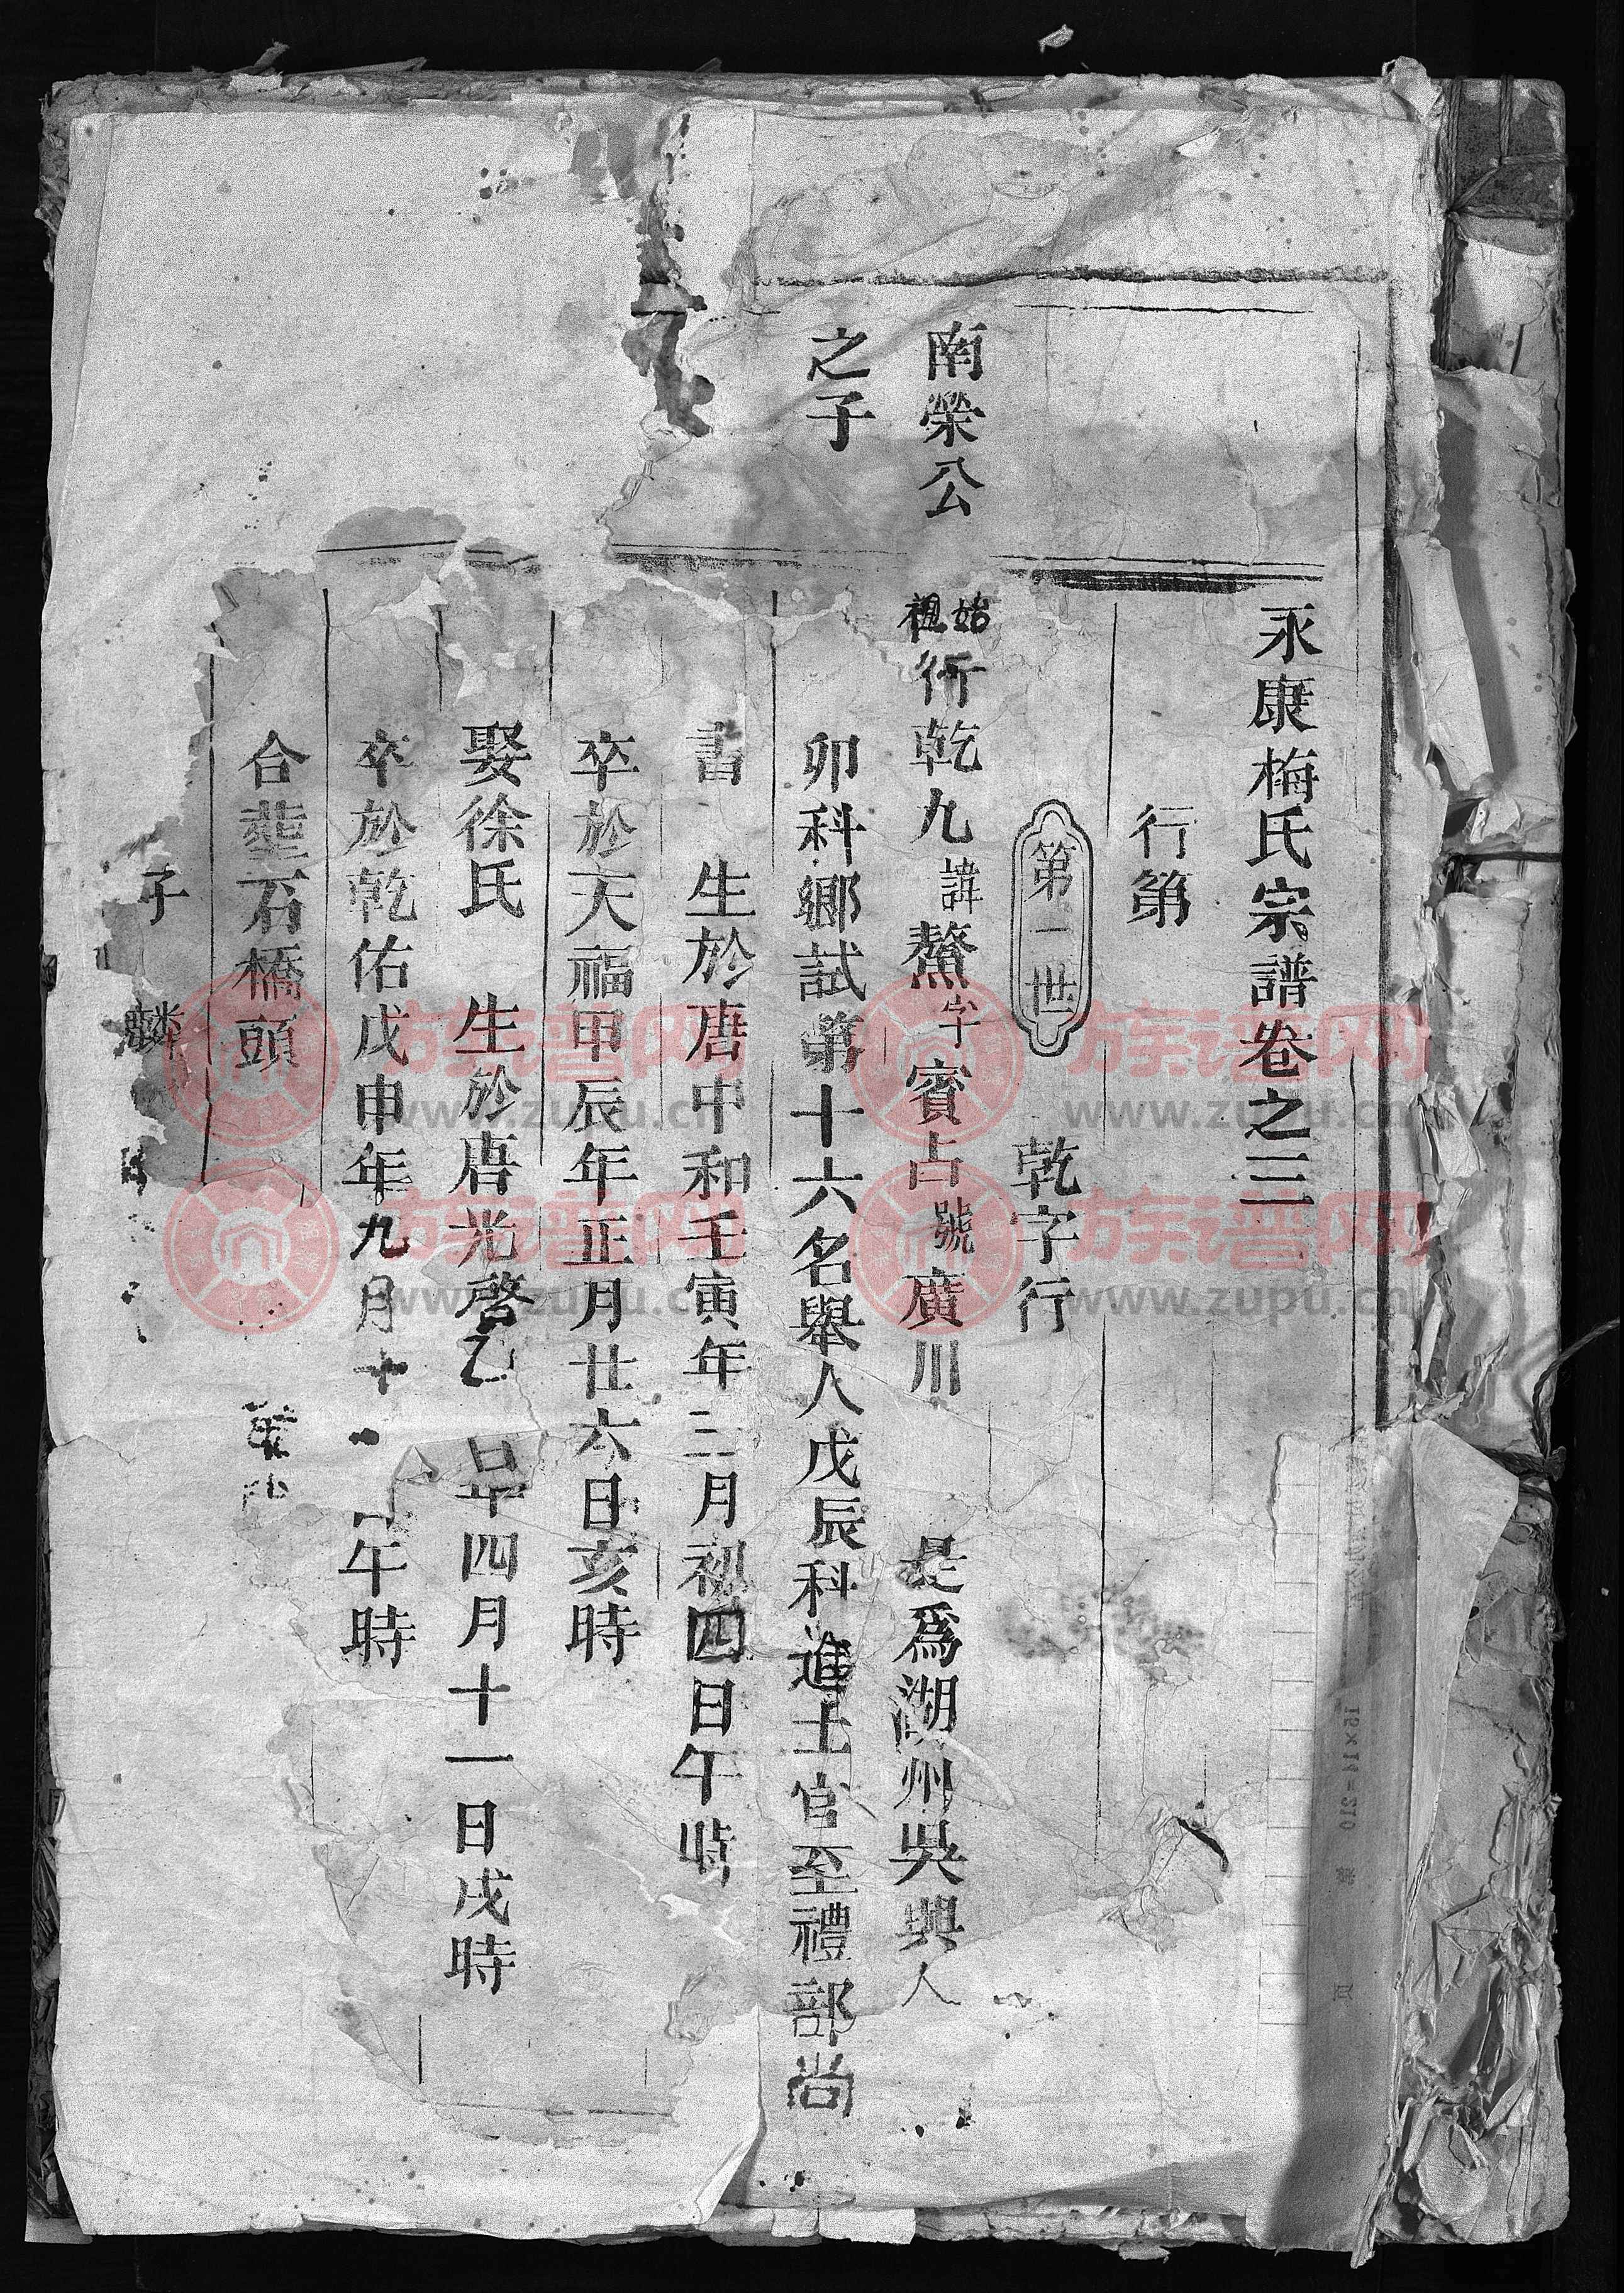 永康梅氏宗譜卷之三
行第
第一世
乾字行
南榮公
始祖行乾九諱鰲字賓占號廣川
是爲湖州吳興人
之子
卯科鄉試第十六名舉人戊辰科進士官至禮部尚
書 生於唐中和壬寅年三月初四日午時
卒於天福甲辰年正月廿六日亥時
娶徐氏 生於唐光啓乙巳年四月十一日戌時
卒於乾佑戊申年九月十 午時
合葬石橋頭
子 麟
族谱网
www.zupu.cn
族谱网
www.zupu.cn
族谱网
www.zupu.cn
族谱网
www.zupu.cn
15×14=210
第
页